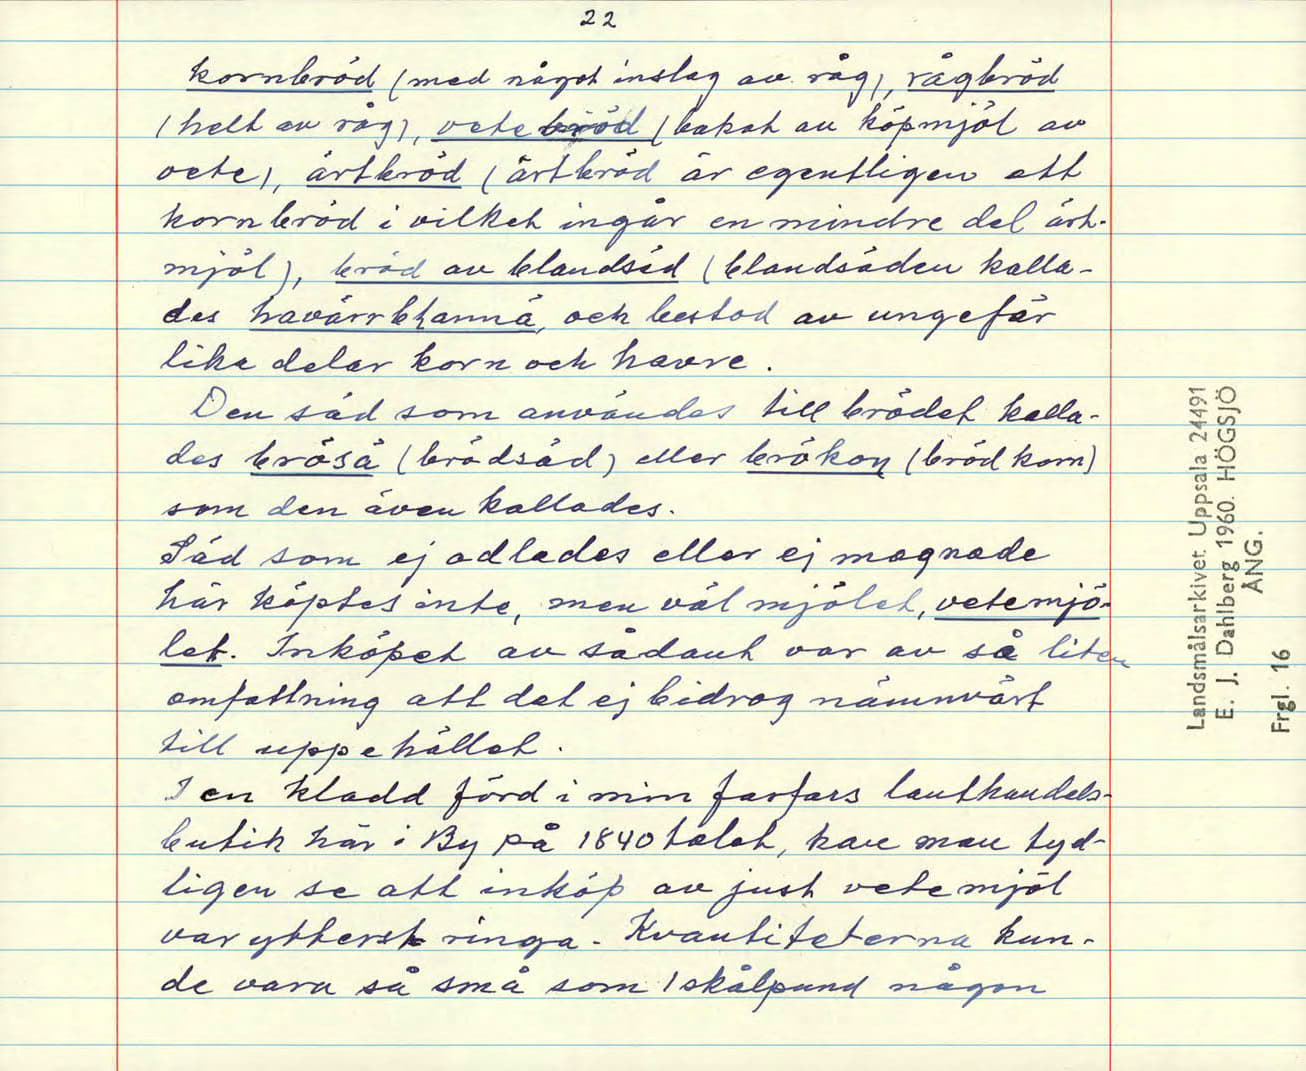 22
kornbröd (med något inslag av råg), rågbröd
(helt av råg), vetebröd (bakat av köpmjöl av
vete), ärtbröd (ärtbröd är egentligen ett
kornbröd i vilket ingår en mindre del ärt-
mjöl), bröd av blandsäd (blandsäden kalla-
des havärrblannä, och bestod av ungefär
lika delar korn och havre.
Den säd som användes till brödet kalla-
des brösä (brödsäd) eller brökoṇ (brödkorn)
som den även kallades.
Säd som ej odlades eller ej mognade
här köptes inte, men väl mjölet, vetemjö-
let. Inköpet av sådant var av så liten
omfattning att det ej bidrog nämnvärt
till uppehället.
I en kladd förd i min farfars lanthandels-
butik här i By på 1840 talet, kan man tyd-
ligen se att inköp av just vetemjöl
var ytterst ringa. Kvantiteterna kun-
de vara så små som 1 skålpund någon
Landsmålsarkivet Uppsala 24491
E. J. Dahlberg 1960. HÖGSJÖ
ÅNG.
Frgl. 16